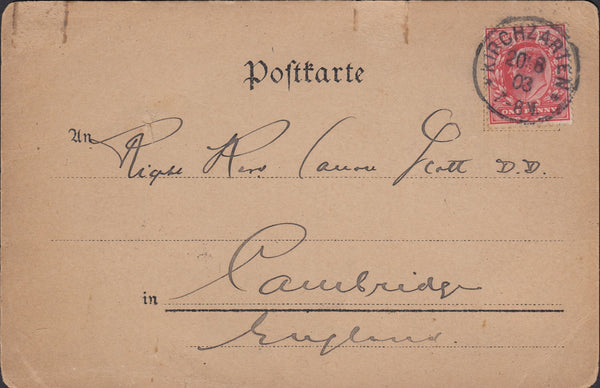 Postkarte
KIRCHZARTEN
20 8
03
ONE PENNY
An Right Rev Canon Scott D.D.
in Cambridge
England.